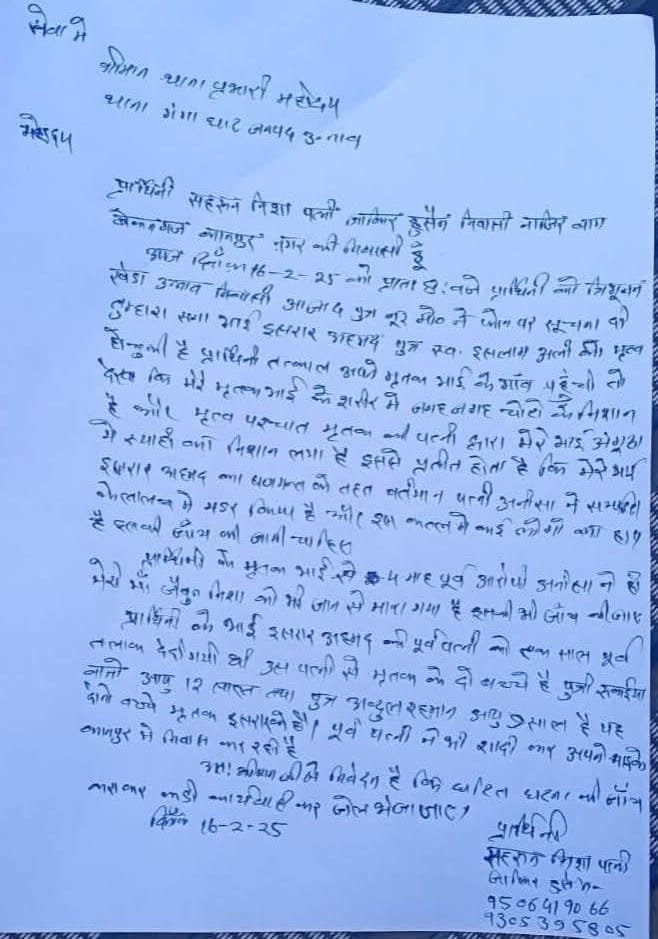 सेवा में
श्रीमान थाना प्रभारी महोदय
थाना गंगा घाट जनपद उन्नाव
महोदय
प्रार्थिनी सहरुन निशा पत्नी जाकिर हुसैन निवासी नाजिर बाग
बेकनगंज कानपुर नगर की निवासी हूँ
आज दिनाँक 16-2-25 को प्रातः 6: बजे प्रार्थिनी को त्रिभुवन
खेडा उन्नाव निवासी आजाद पुत्र नूर मो० ने फोन पर सूचना दी
तुम्हारा सगा भाई इसरार अहमद पुत्र स्व. इसलाम अली की मृत्य
हो चुकी है प्रार्थिनी तत्काल अपने मृतक भाई के गाँव पहुँची तो
देखा कि मेरे मृतक भाई के शरीर में जगह जगह चोटो के निशान
है और मृत्य पश्चात मृतक की पत्नी द्वारा मेरे भाई अंगूठा
में स्याही का निशान लगा है इससे प्रतीत होता है कि मेरे भाई
इसरार अहमद का षणयन्त्र के तहत वर्तमान पत्नी अनीसा ने सम्पत्ति
के लालच में मडर किया है और इस कत्ल में कई लोगों का हाथ
है इसकी जाँच की जानी चाहिए
प्रार्थिनी के मृतक भाई से 4 माह पूर्व आरोपी अनीसा ने ही
मेरी माँ जैबुन निशा को भी जान से मारा गया है इसकी भी जाँच की जाए
प्रार्थिनी के भाई इसरार अहमद की पूर्व पत्नी को एक साल पूर्व
तलाक दे दी गयी थी उस पत्नी से मृतक के दो बच्चे है पुत्री
बानो आयु 12 साल तथा पुत्र अब्दुल रहमान आयु साल है यह
दोनो बच्चे मृतक इसरार के है। पूर्व पत्नी ने भी शादी कर अपने मायके
कानपुर में निवास कर रही है
अतः श्रीमान जी से निवेदन है कि घटित घटना की जाँच
कराकर कडी कार्यवाही कर जेल भेजा जाए।
दिनाँक 16-2-25
प्रार्थिनी
सहरुन निशा पत्नी
जाकिर हुसैन
9506419066
9305395805